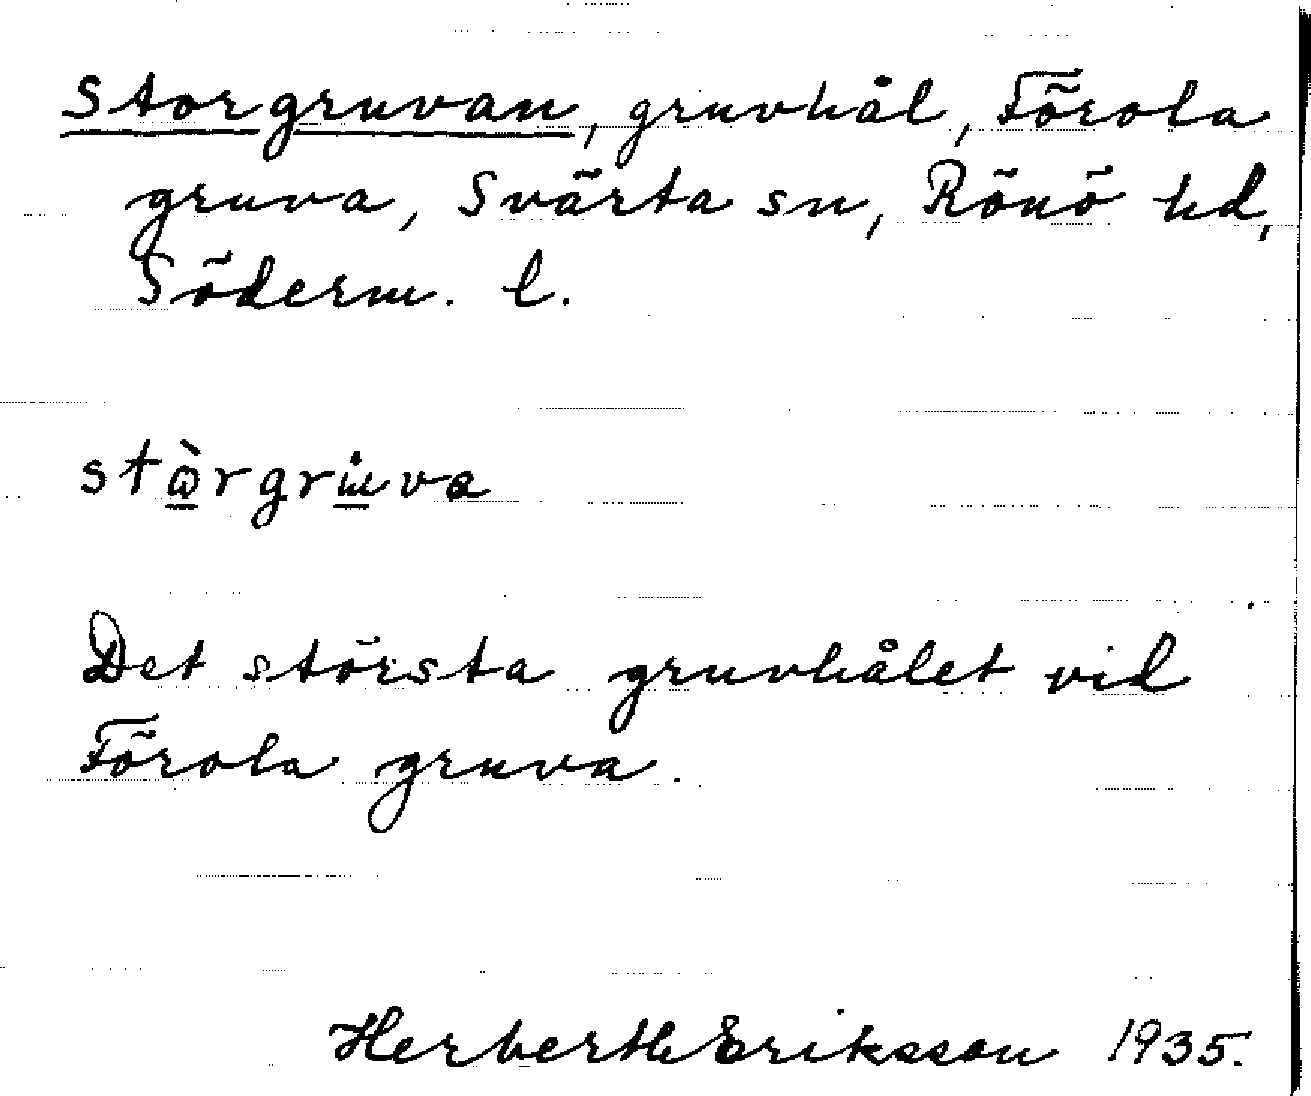 Storgruvan, gruvhål, Förola
gruva, Svärta sn, Rönö hd,
Söderm. l.
stɷ̀rgrɯ̇va
Det största gruvhålet vid
Förola gruva.
Herbert Eriksson 1935.